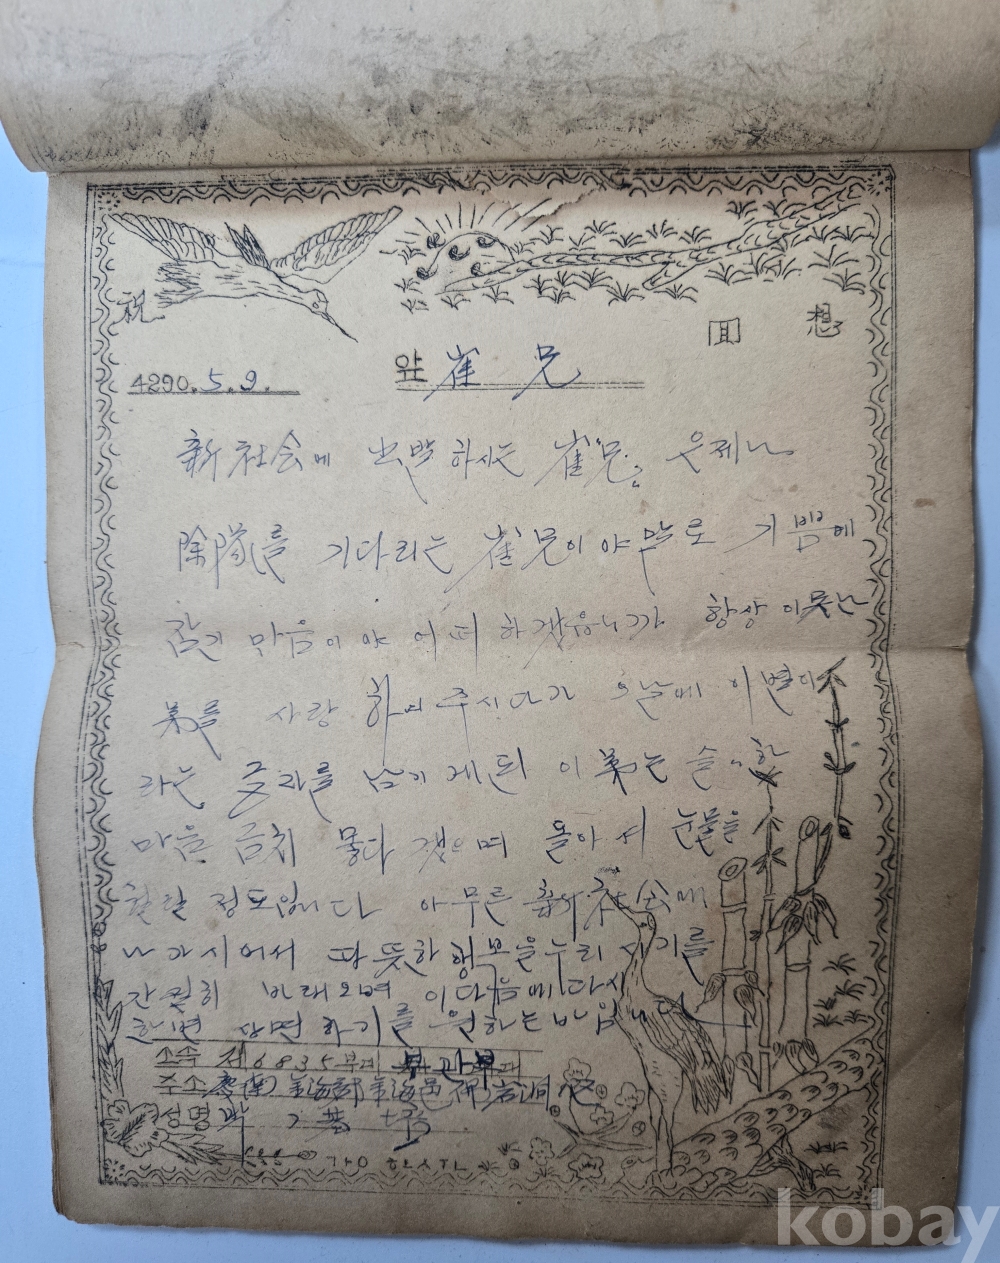 祝
回 想
4290.5.9. 앞 崔 兄
新社会에 出발하시는 崔兄. 은제나
除隊를 기다리는 崔兄이야말로 기쁨에
마음이야 어떠하겠읍니가 항상 이못난
弟를 사랑하여 주시다가 오날에 이별이
라는 를 남기게 된 이 弟는 슬
마음 금치 못다 겠으며 돌아서 눈물을
정도입니다 아무른 新社会에
나가시어서 따뜻한 행복을 누리시기를
간절히 바래오며 이다음에 다시
한번 상면하기를 원하는 바입니다
소속 제6835부대 부관부
주소 慶南 金海郡 金海邑
성명 박
kobay